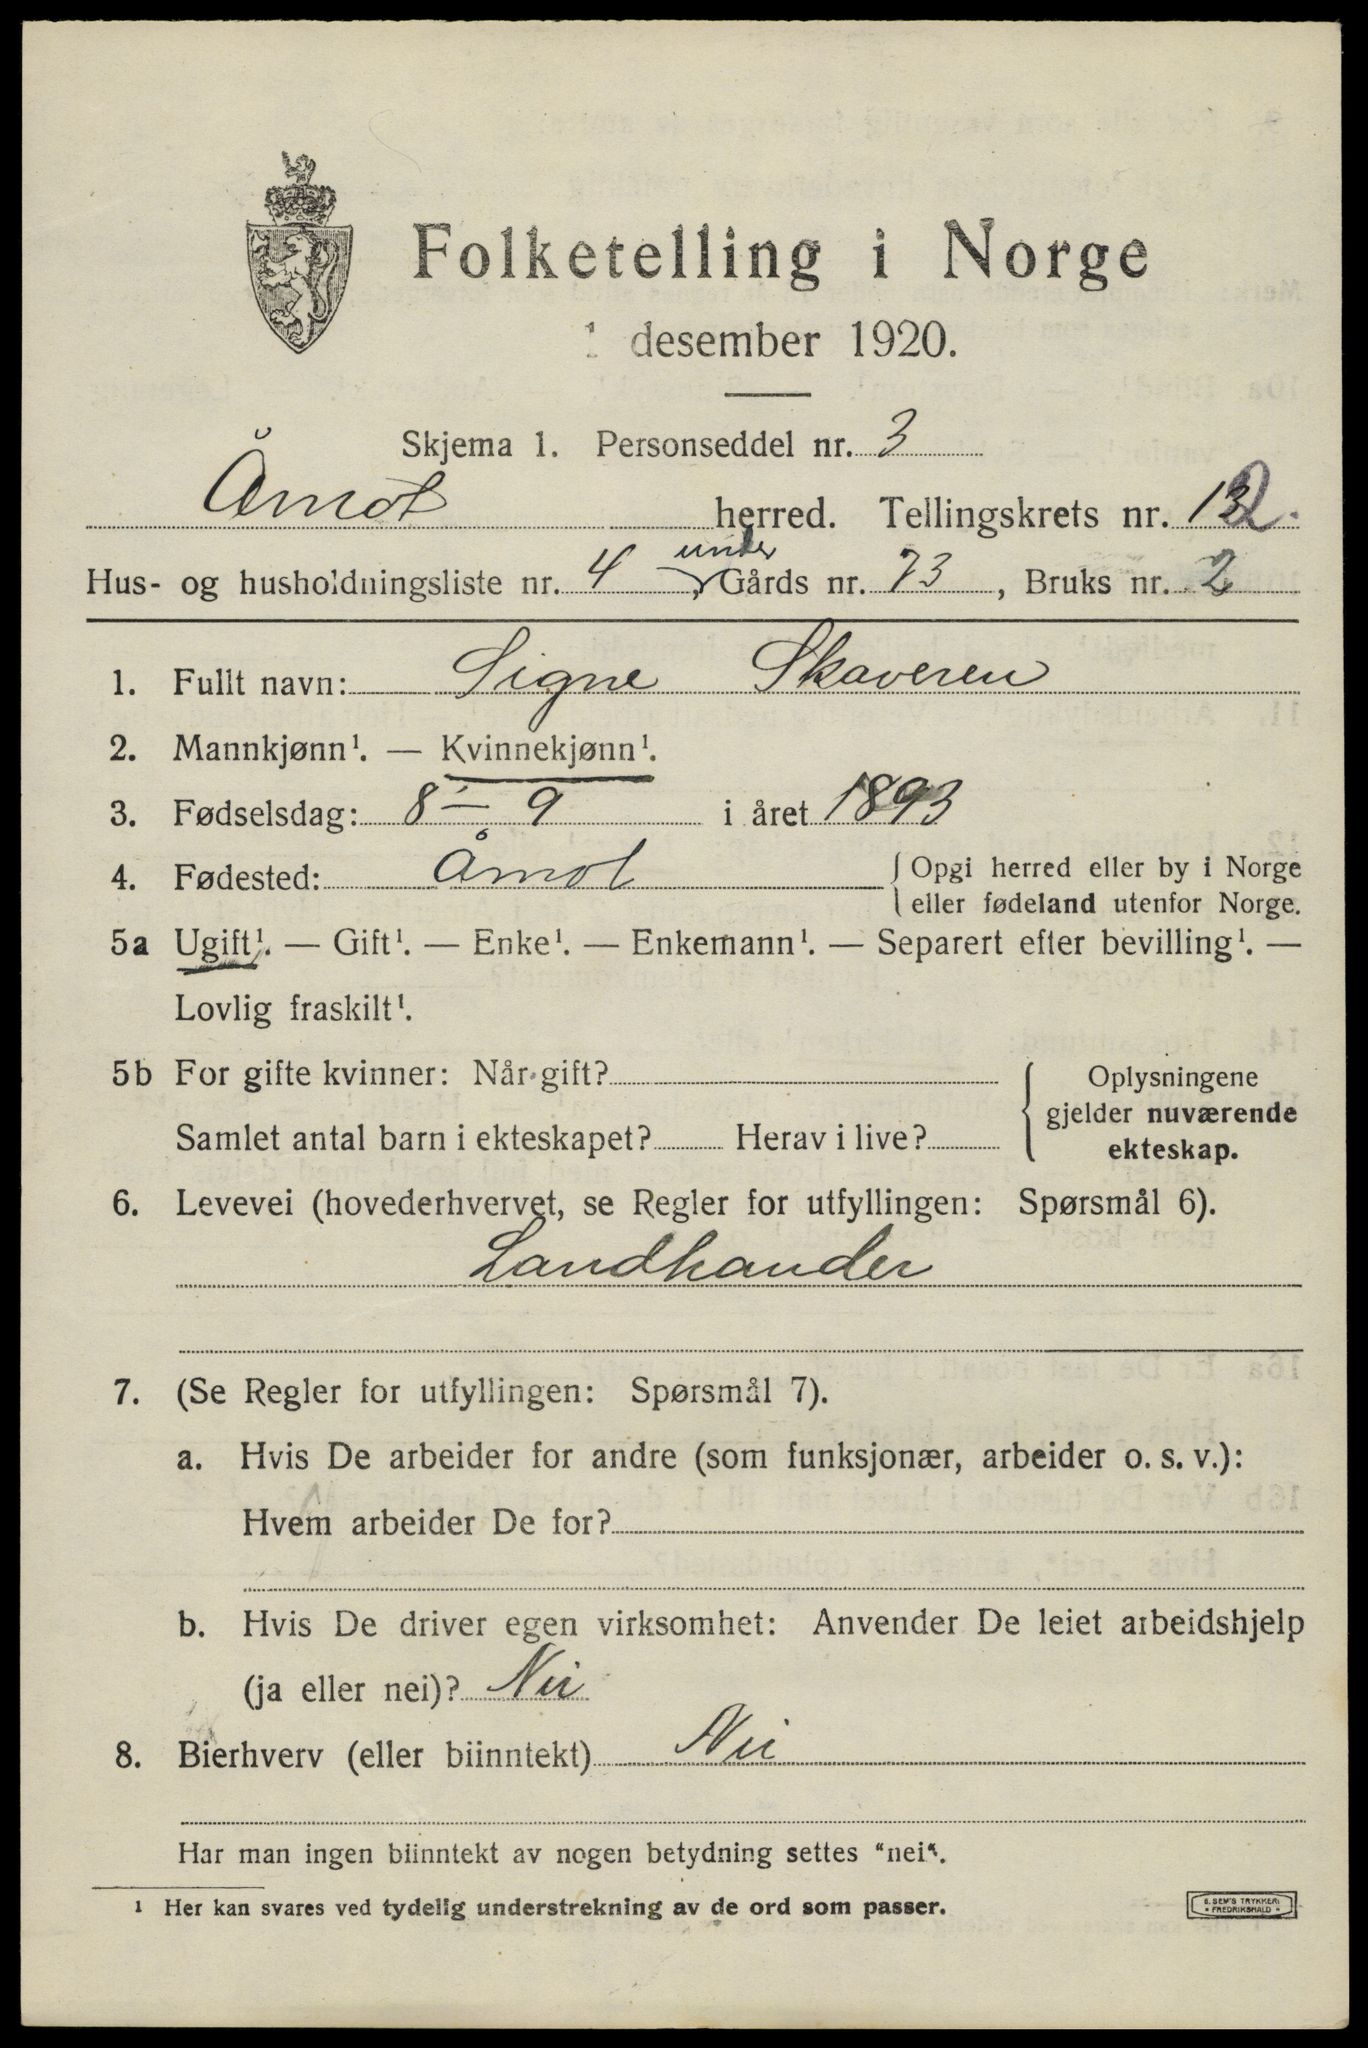 Folketelling i Norge
1 desember 1920.
Skjema 1. Personseddel nr. 3
Åmot herred. Tellingskrets nr. 12.
under
Hus- og husholdningsliste nr. 4, Gårds nr. 73, Bruks nr. 2
1. Fullt navn: Signe Skaveren
2. Mannkjønn¹. — Kvinnekjønn¹.
3. Fødselsdag: 8 – 9 i året 1893
4. Fødested: Åmot { Opgi herred eller by i Norge
eller fødeland utenfor Norge.
5a Ugift¹. — Gift¹. — Enke¹. — Enkemann¹. — Separert efter bevilling¹. —
Lovlig fraskilt¹.
5b For gifte kvinner: Når gift? { Oplysningene
gjelder nuværende
Samlet antal barn i ekteskapet? Herav i live?
ekteskap.
6. Levevei (hovederhvervet, se Regler for utfyllingen: Spørsmål 6).
Landhander
7. (Se Regler for utfyllingen: Spørsmål 7).
a. Hvis De arbeider for andre (som funksjonær, arbeider o. s. v.):
Hvem arbeider De for?
b. Hvis De driver egen virksomhet: Anvender De leiet arbeidshjelp
(ja eller nei)? Nei
8. Bierhverv (eller biinntekt) Nei
Har man ingen biinntekt av nogen betydning settes "nei".
¹ Her kan svares ved tydelig understrekning av de ord som passer.
S. SEM'S TRYKKERI
* FREDRIKSHALD *